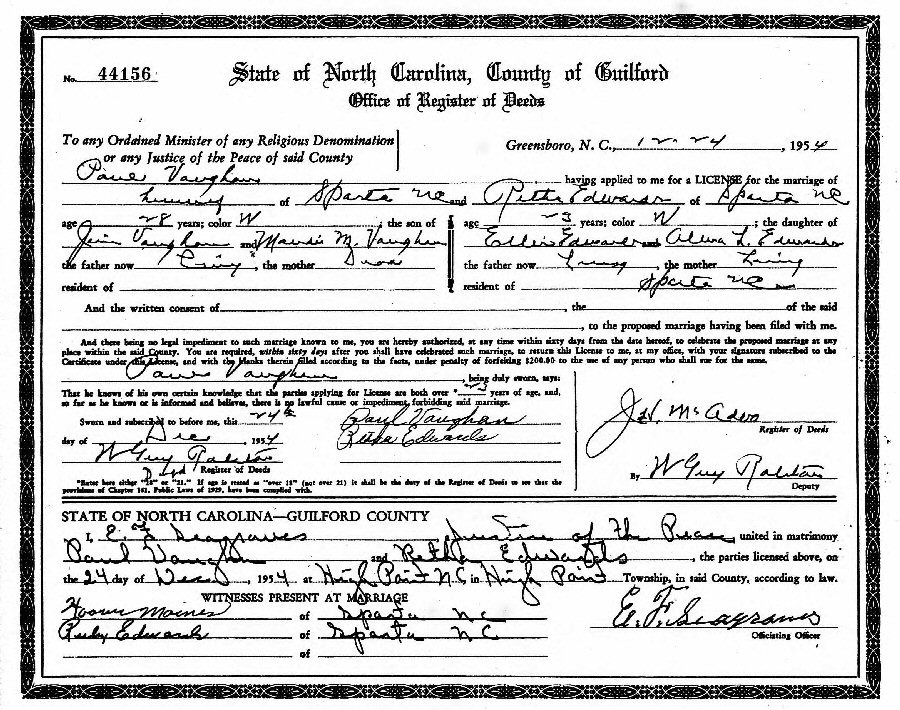 No. 44156 State of North Carolina, County of Guilford
Office of Register of Deeds
To any Ordained Minister of any Religious Denomination
or any Justice of the Peace of said County
Greensboro, N. C., 12-24, 1954
Paul Vaughan having applied to me for a LICENSE for the marriage of
of Sparta NC and Retha Edwards of Sparta NC
age 28 years; color W; the son of age 23 years; color W; the daughter of
Jim Vaughan and M. Vaughan Edwards and L. Edwards
the father now Living, the mother Dead the father now Living, the mother Living
resident of resident of Sparta NC
And the written consent of , the of the said
, to the proposed marriage having been filed with me.
And there being no legal impediment to such marriage known to me, you are hereby authorized, at any time within sixty days from the date hereof, to celebrate the proposed marriage at any
place within the said County. You are required, within sixty days after you shall have celebrated such marriage, to return this License to me, at my office, with your signature subscribed to the
Certificate under this License, and with the blanks therein filled according to the facts, under penalty of forfeiting $200.00 to the use of any person who shall sue for the same.
Paul Vaughan, being duly sworn, says:
That he knows of his own certain knowledge that the parties applying for License are both over * years of age, and,
so far as he knows or is informed and believes, there is no lawful cause or impediment, forbidding said marriage.
Sworn and subscribed to before me, this 24th Paul Vaughan
day of Dec, 1954 Retha Edwards
W Guy Ralston
Register of Deeds
*Enter here either "18" or "21." If age is stated as "over 18" (not over 21) it shall be the duty of the Register of Deeds to see that the
provisions of Chapter 161, Public Laws of 1929, have been complied with.
McAdoo
Register of Deeds
By W Guy Ralston
Deputy
STATE OF NORTH CAROLINA—GUILFORD COUNTY
I, E. F. Seagraves Justice of the Peace, united in matrimony
Paul Vaughn and Retha Edwards, the parties licensed above, on
the 24 day of Dec, 1954 at High Point N.C in High Point Township, in said County, according to law.
WITNESSES PRESENT AT MARRIAGE
Moxley of Sparta NC
Ruby Edwards of Sparta NC
of
E. F. Seagraves
Officiating Officer